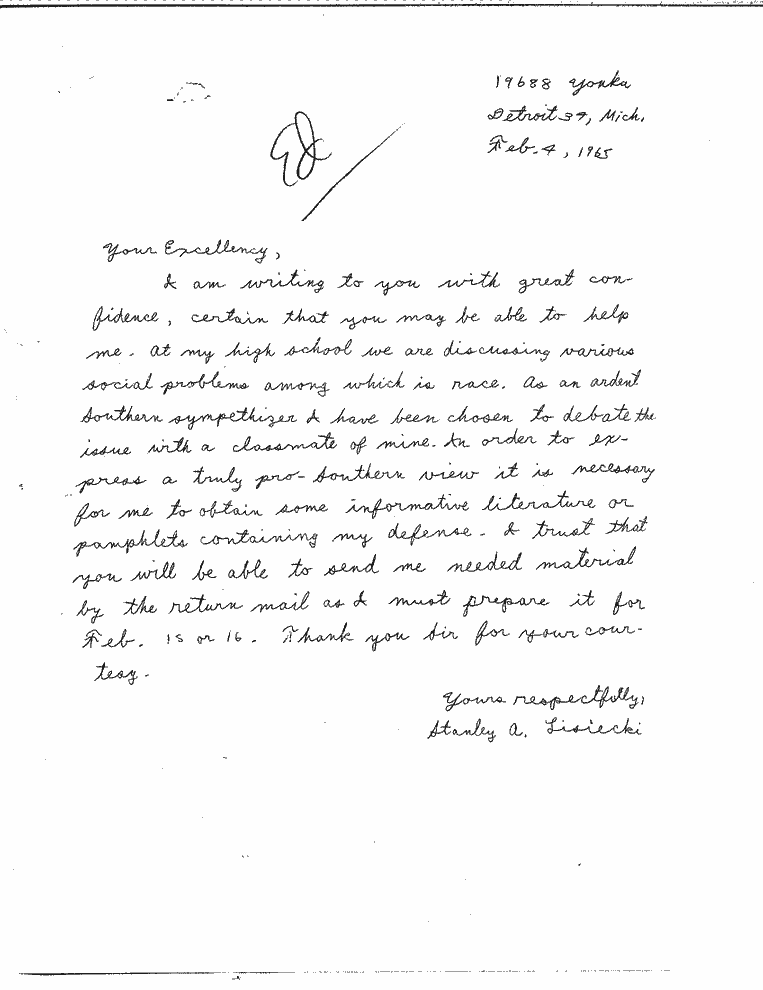 19688 Yonka
Detroit 39, Mich.
Feb. 4, 1965
Ed
Your Excellency,
I am writing to you with great con-
fidence, certain that you may be able to help
me. At my high school we are discussing various
social problems among which is race. As an ardent
Southern sympethizer I have been chosen to debate the
issue with a classmate of mine. In order to ex-
press a truly pro-Southern view it is necessary
for me to obtain some informative literature or
pamphlets containing my defense. I trust that
you will be able to send me needed material
by the return mail as I must prepare it for
Feb. 15 or 16. Thank you Sir for your cour-
tesy.
Yours respectfully,
Stanley A. Lisiecki